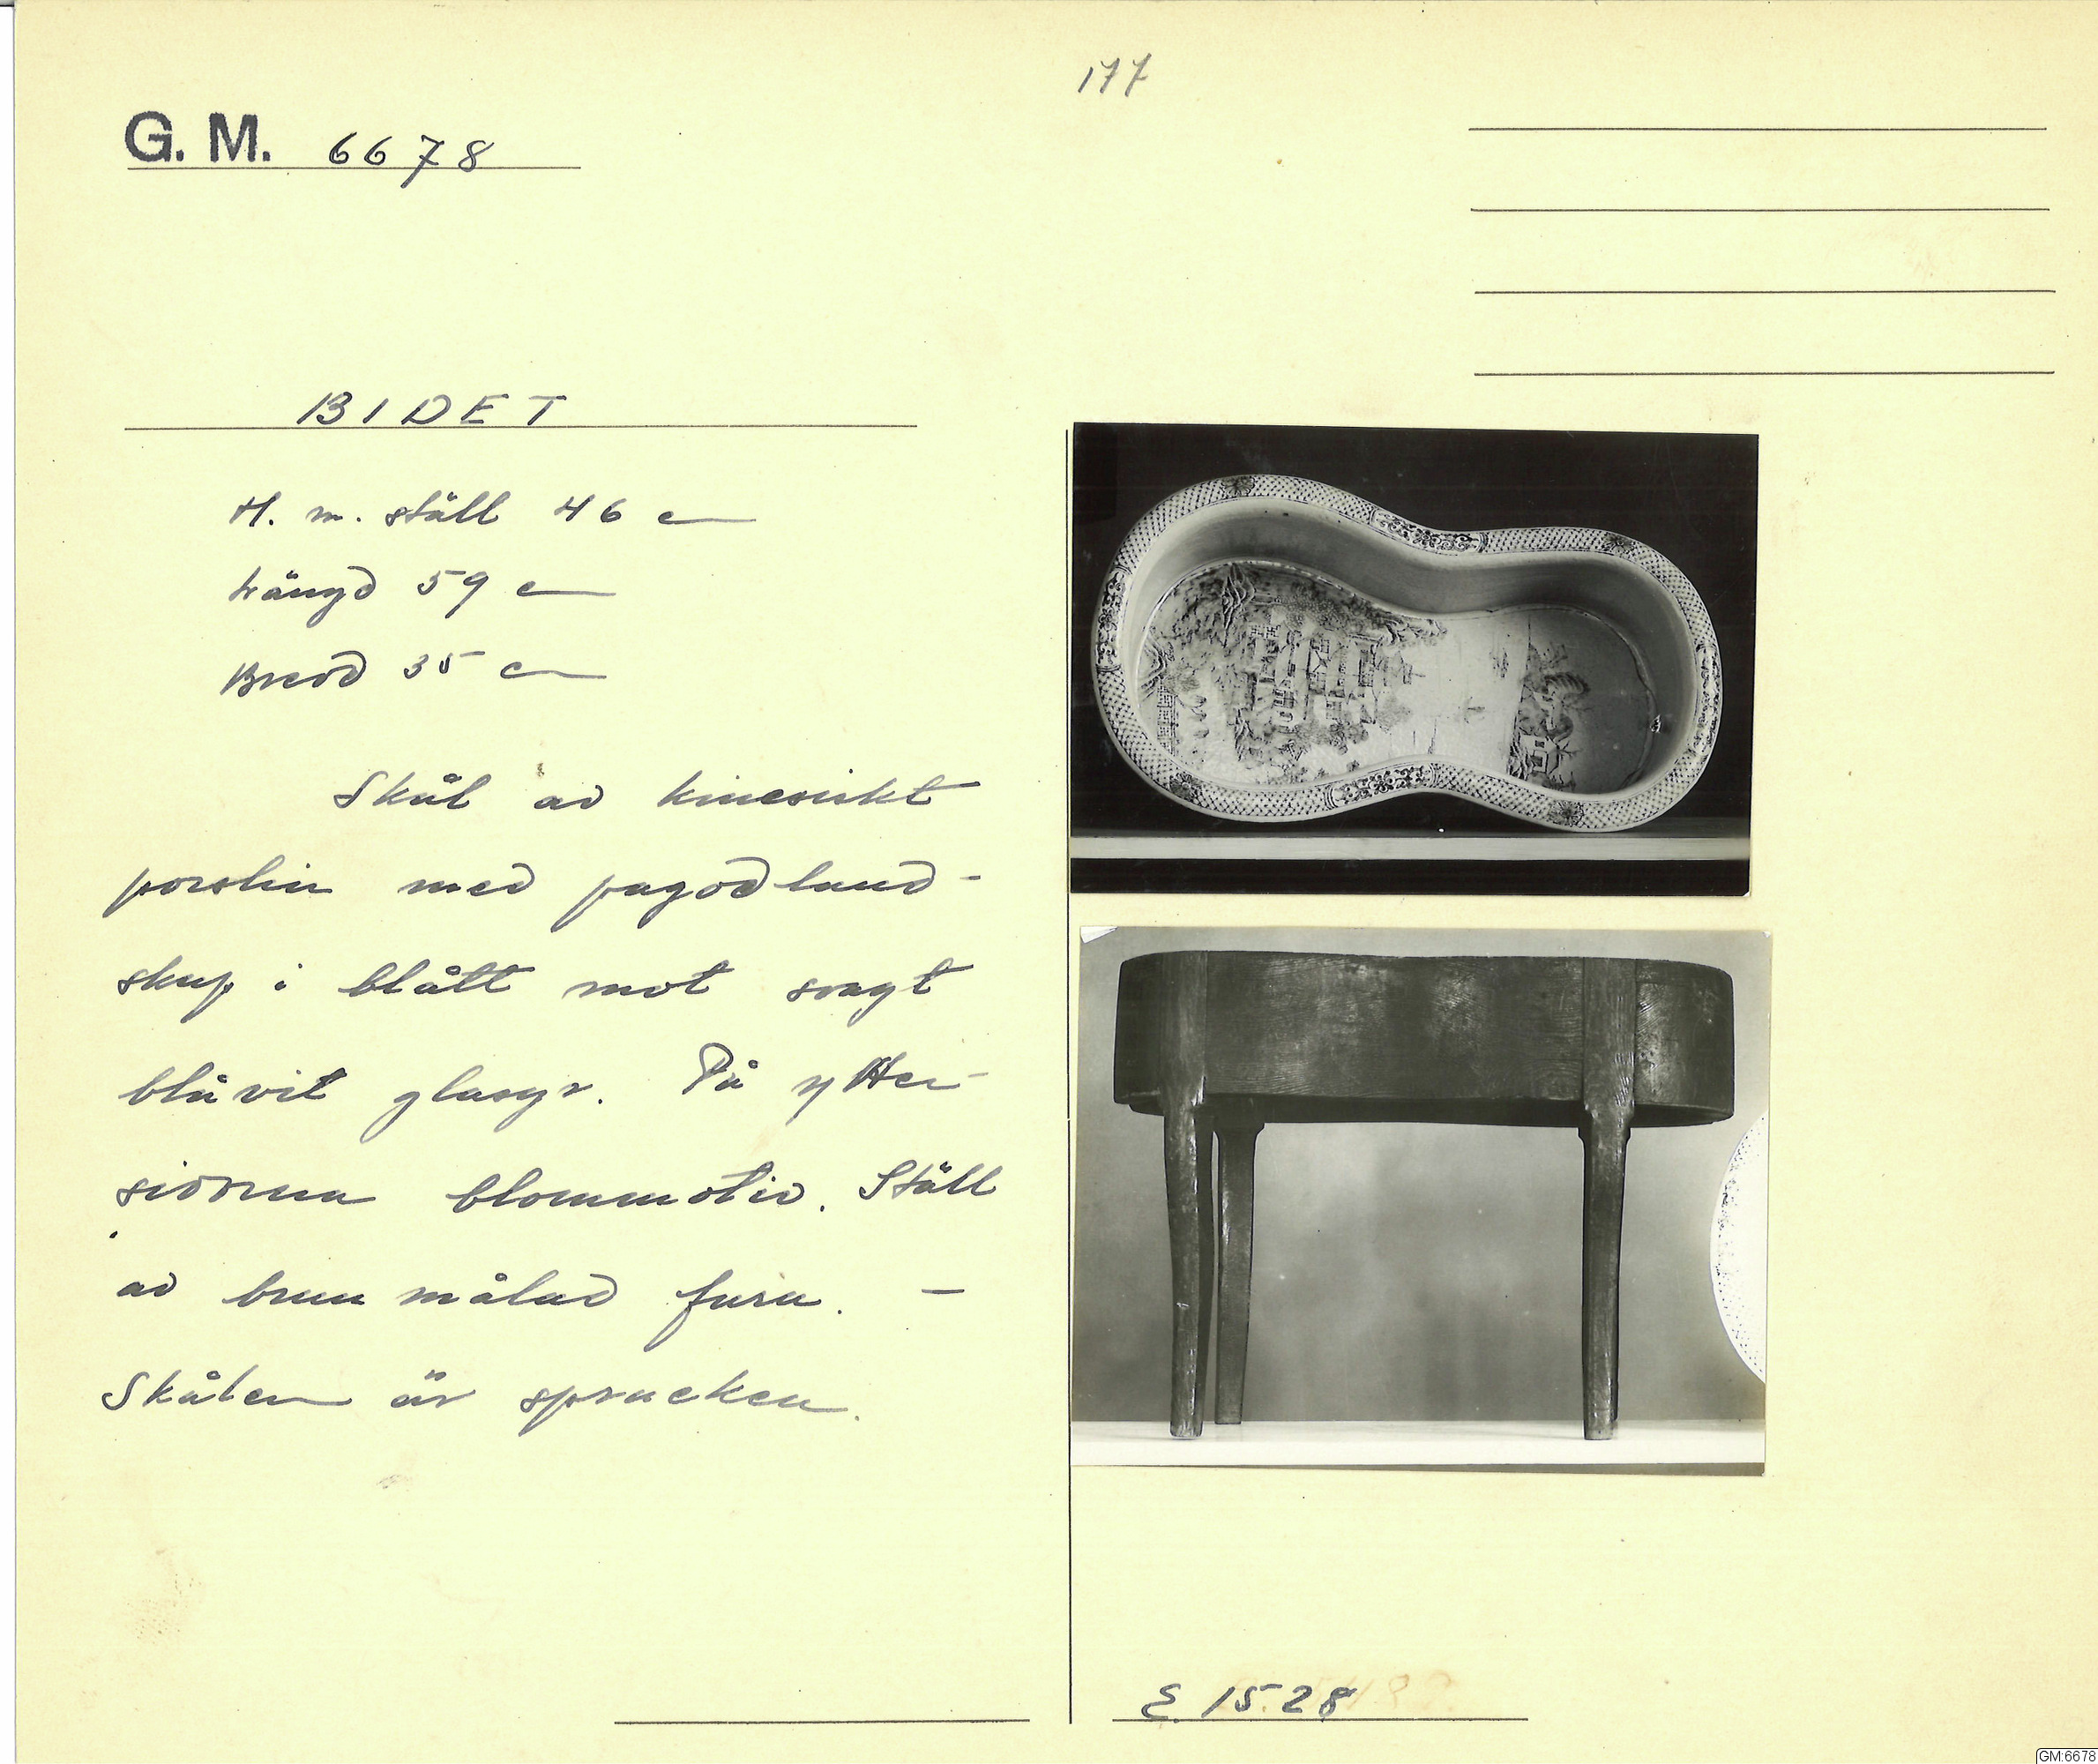 177
G. M. 6678
BIDET
H. m. ställ 46 cm
Längd 59 cm
Bredd 35 cm
Skål av kinesiskt
porslin med pagodland-
skap i blått mot svagt
blåvit glasyr. På ytter-
sidorna blommotiv. Ställ
av brun målad furu. —
Skålen är sprucken.
E. 1528
GM:6678